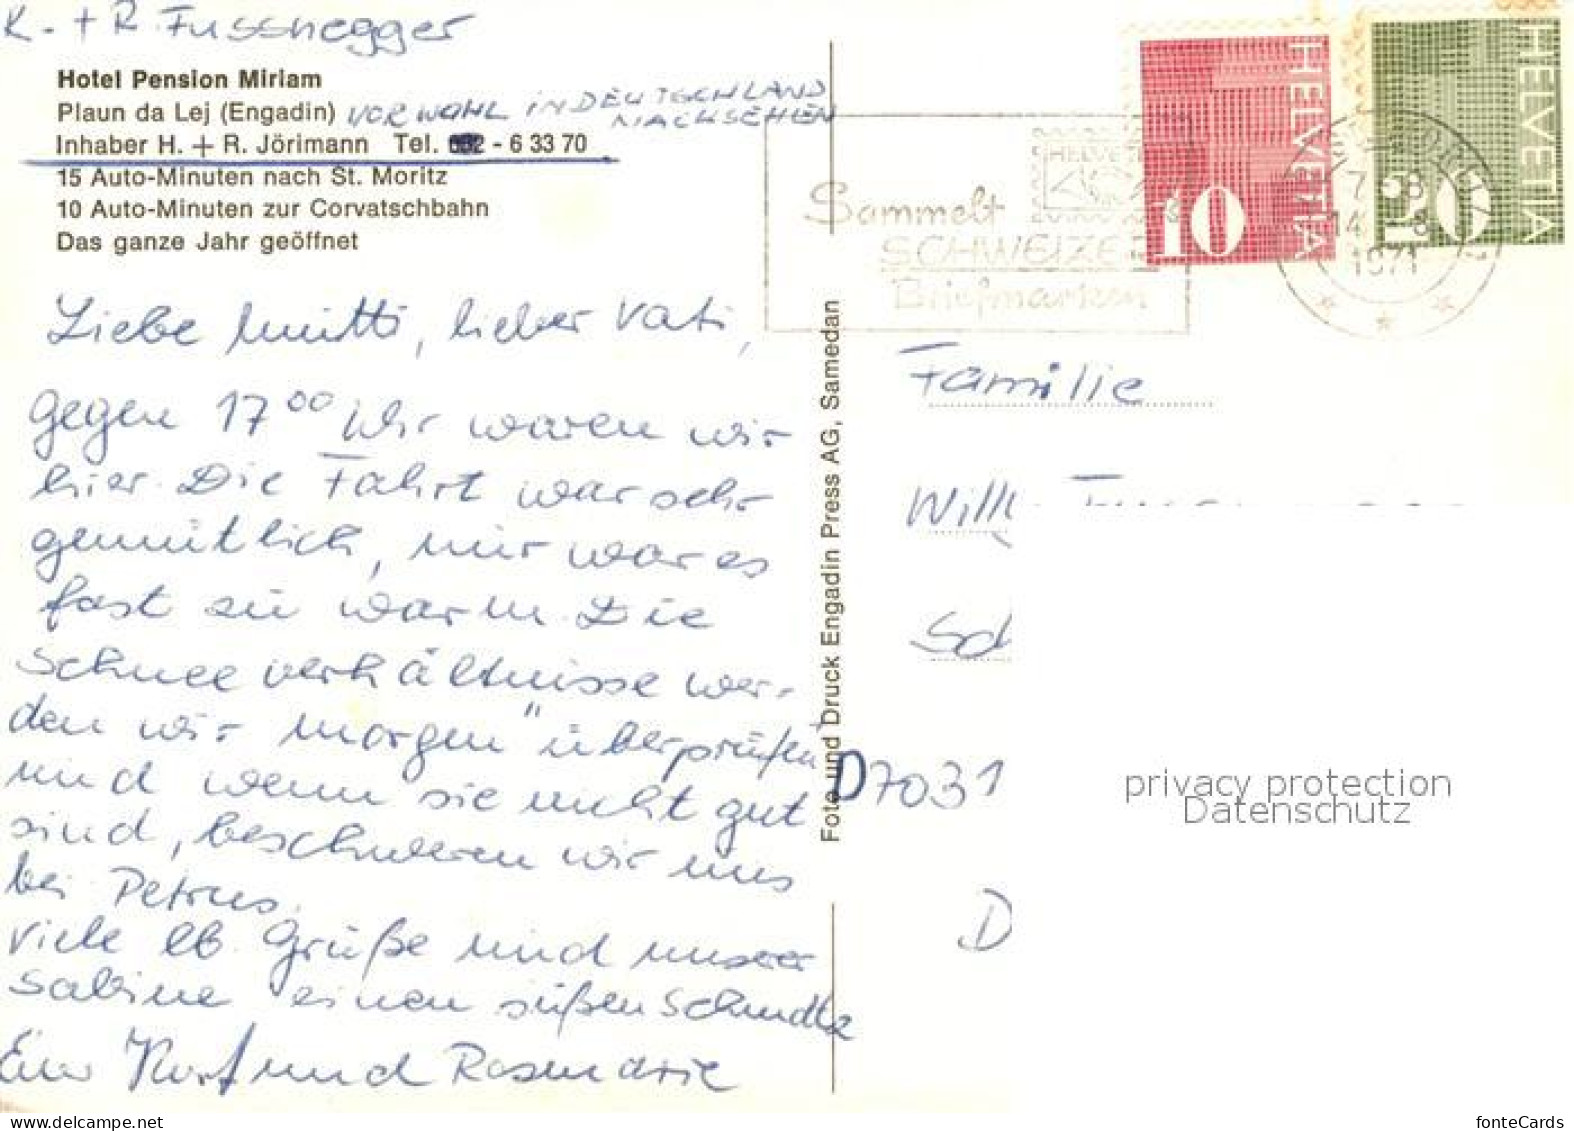 K. + R. Fussnegger
Hotel Pension Miriam
Plaun da Lej (Engadin) VORWAHL IN DEUTSCHLAND
NACHSEHEN
Inhaber H. + R. Jörimann Tel. 082 - 6 33 70
15 Auto-Minuten nach St. Moritz
10 Auto-Minuten zur Corvatschbahn
Das ganze Jahr geöffnet
Liebe Mutti, lieber Vati,
gegen 17⁰⁰ Uhr waren wir
hier. Die Fahrt war sehr
gemütlich, mir war es
fast zu warm. Die
Schneeverhältnisse wer-
den wir morgen "überprüfen"
und wenn sie nicht gut
sind, beschweren wir uns
bei Petrus.
Viele lb. Grüße und unserer
Sabine einen süßen Schmatz
Eure Kurt und Rosemarie
Foto und Druck Engadin Press AG, Samedan
HELVETIA
10
HELVETIA
20
HELVETIA
Sammelt
SCHWEIZER
Briefmarken
14.
1971
Familie
Willy
D 7031
D
privacy protection
Datenschutz
fonteCards